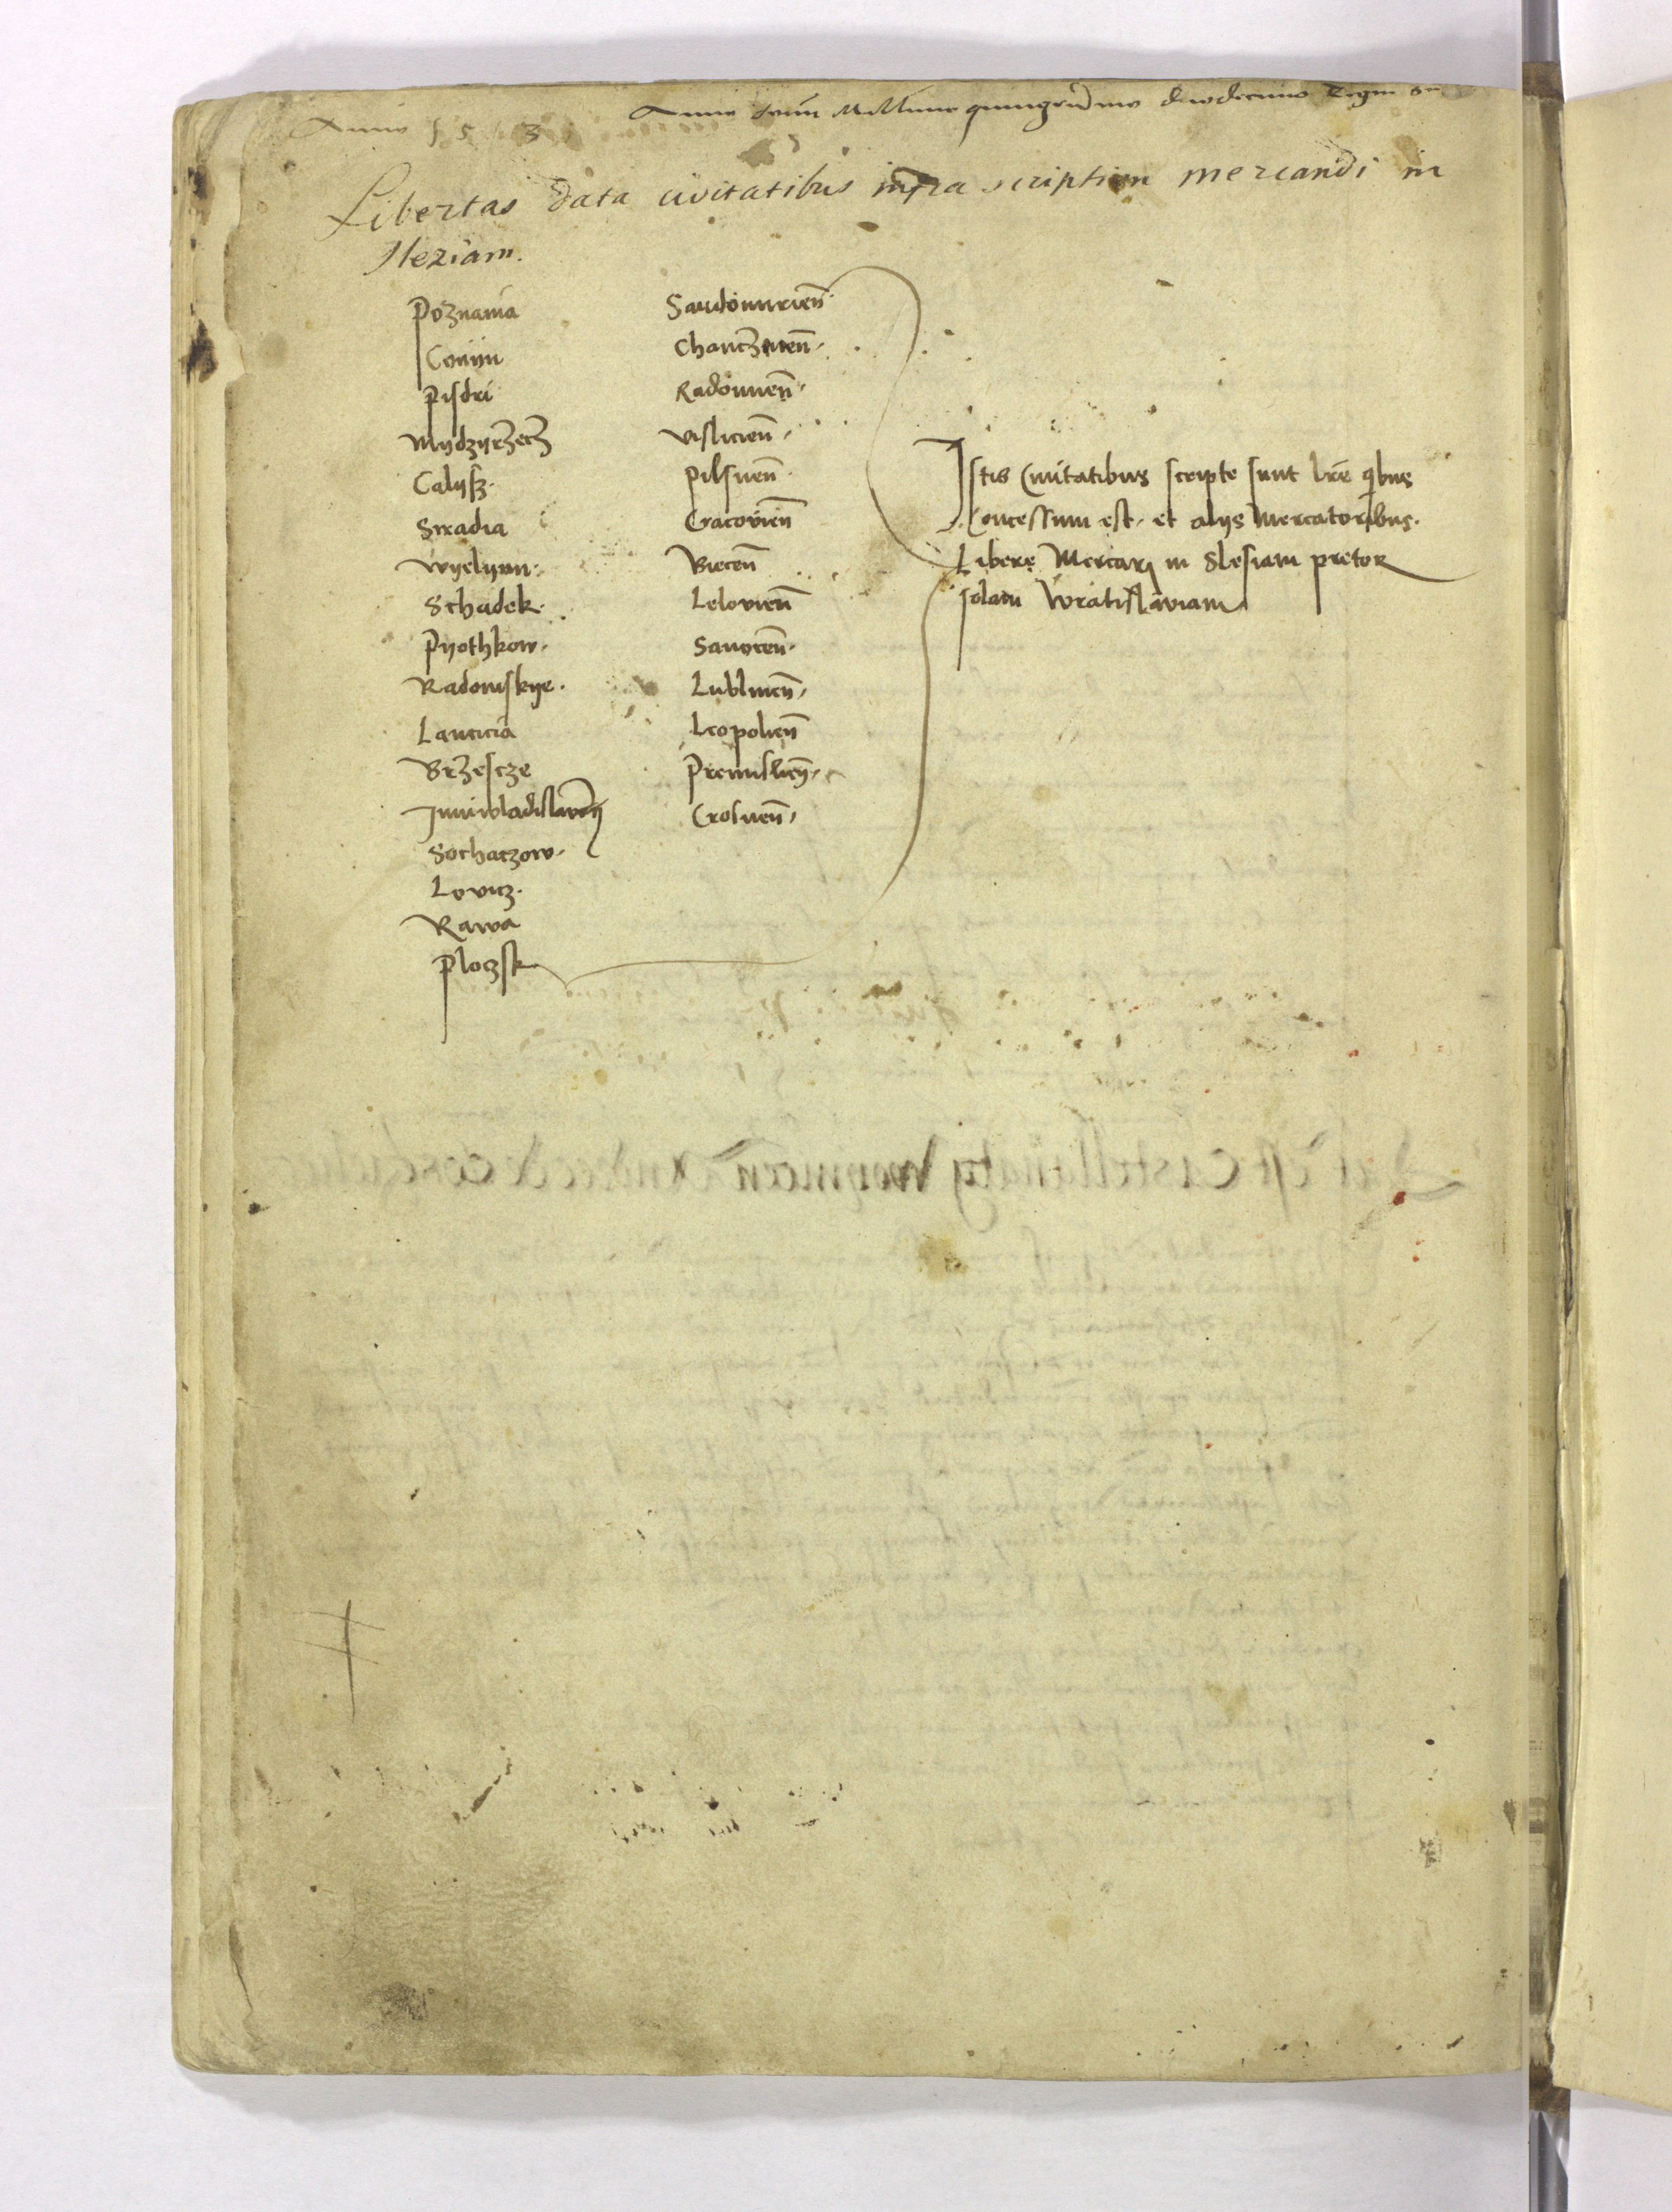 Anno 1513
Anno domini Millimo quingentesimo duodecimo Regni
Libertas data civitatibus infra scriptim mercandi in
Sleziam.
Poznania
Conijn
Pisdri
Mijdzijrzecz
Calijsz.
Siradia
Wyelijun.
Schadek.
Pyothkow.
Radomskye.
Lancicia
Brzescze
Juniwladislavien̄
Sochaczow.
Lovicz.
Rawa
Ploczsk
Sandomirien̄.
Chanczinen̄.
Radomien̄.
Vislicien̄.
Pilsnen̄.
Cracovien̄
Biecen̄
Lelovien̄
Sanocen̄.
Lublinen̄.
Leopolien̄
Premislien̄.
Crosnen̄.
Istis Civitatibus scripte sunt lrē qibus
Concessum est. et alijs Mercatoribus.
Libere Mercari in Slesiam preter
solam Wratislaviam